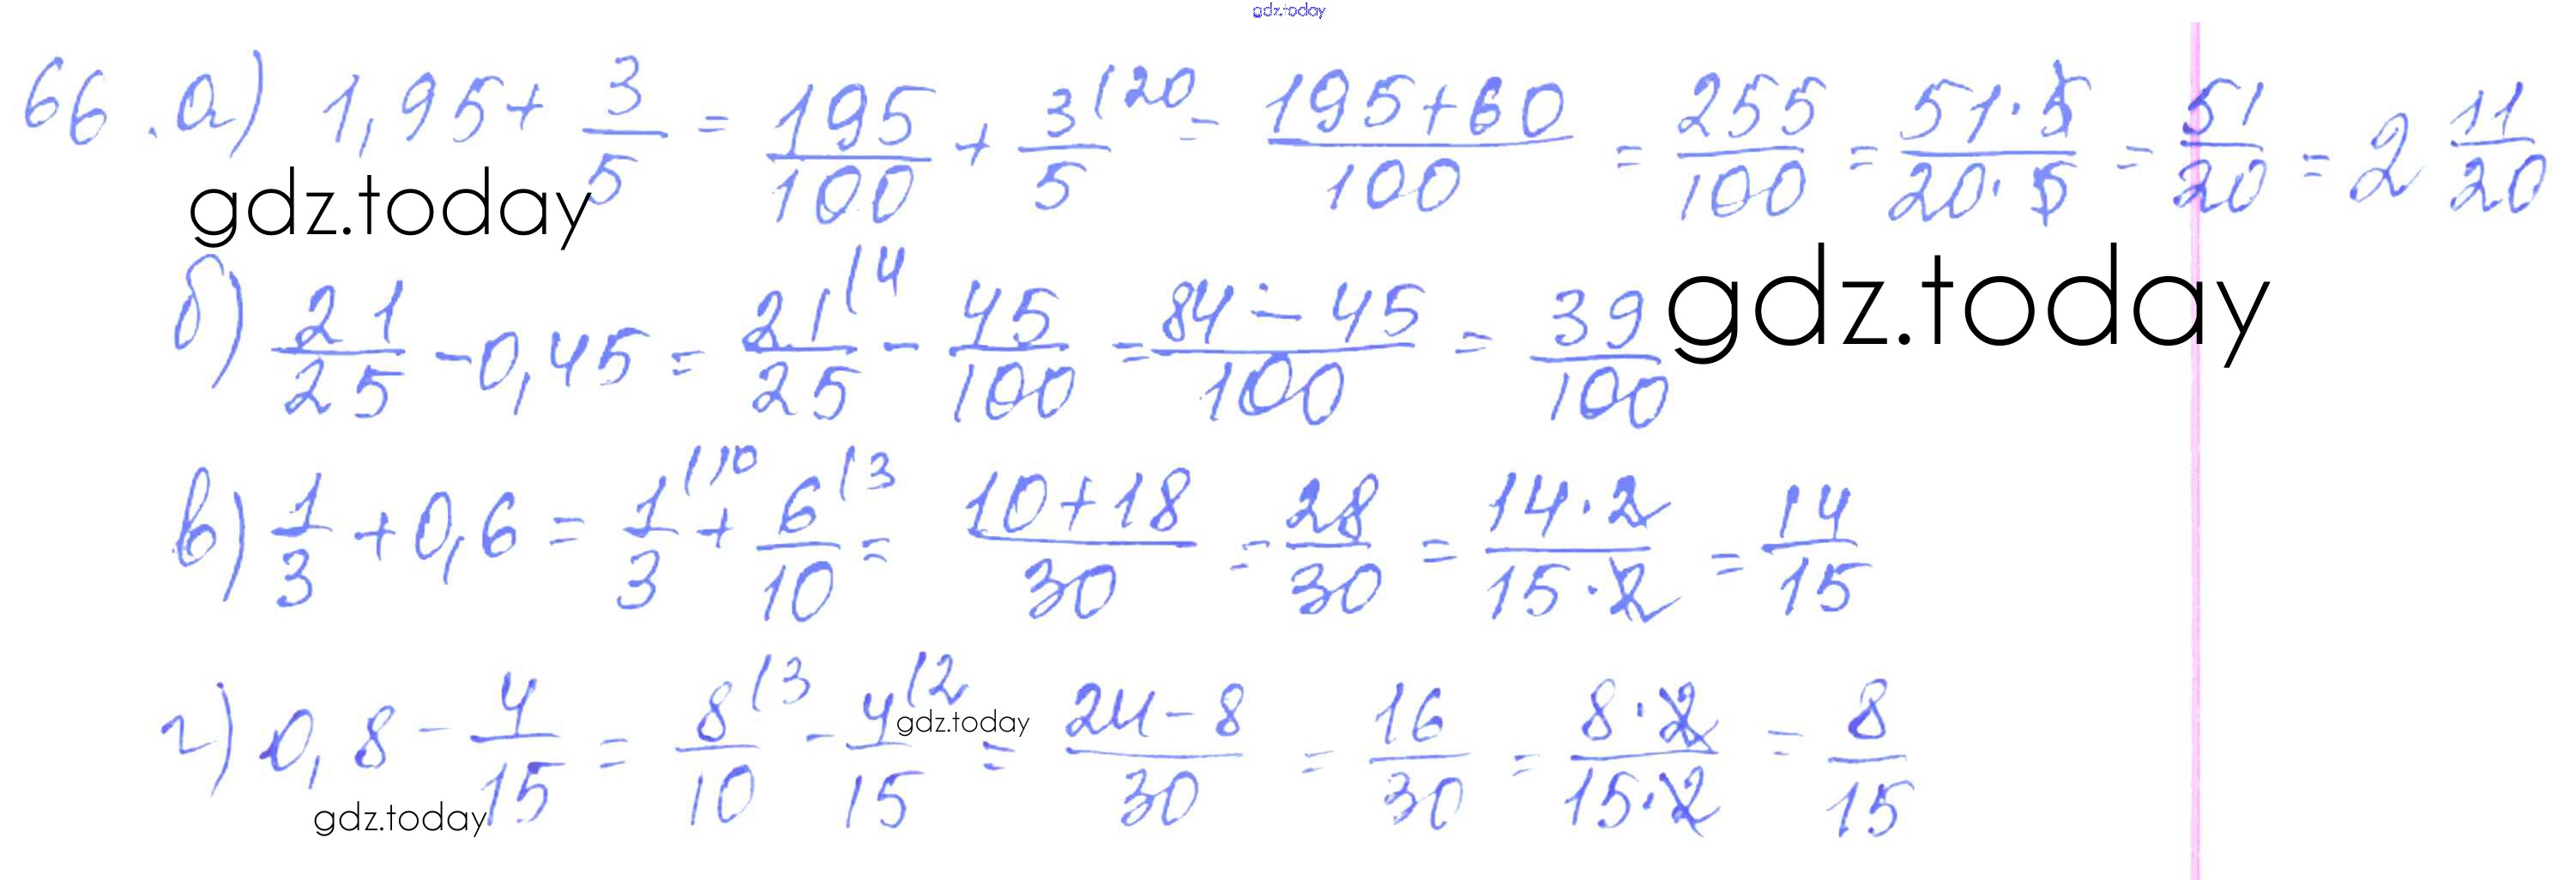 gdz.today
66. а) 1,95 + 3/5 = 195/100 + 3/5 (20 = 195+60/100 = 255/100 = 51·5/20·5 = 51/20 = 2 11/20
gdz.today
gdz.today
б) 21/25 - 0,45 = 21/25 (4 - 45/100 = 84-45/100 = 39/100
в) 1/3 + 0,6 = 1/3 (10 + 6/10 (3 = 10+18/30 = 28/30 = 14·2/15·2 = 14/15
г) 0,8 - 4/15 = 8/10 (3 - 4/15 (2 = 24-8/30 = 16/30 = 8·2/15·2 = 8/15
gdz.today
gdz.today